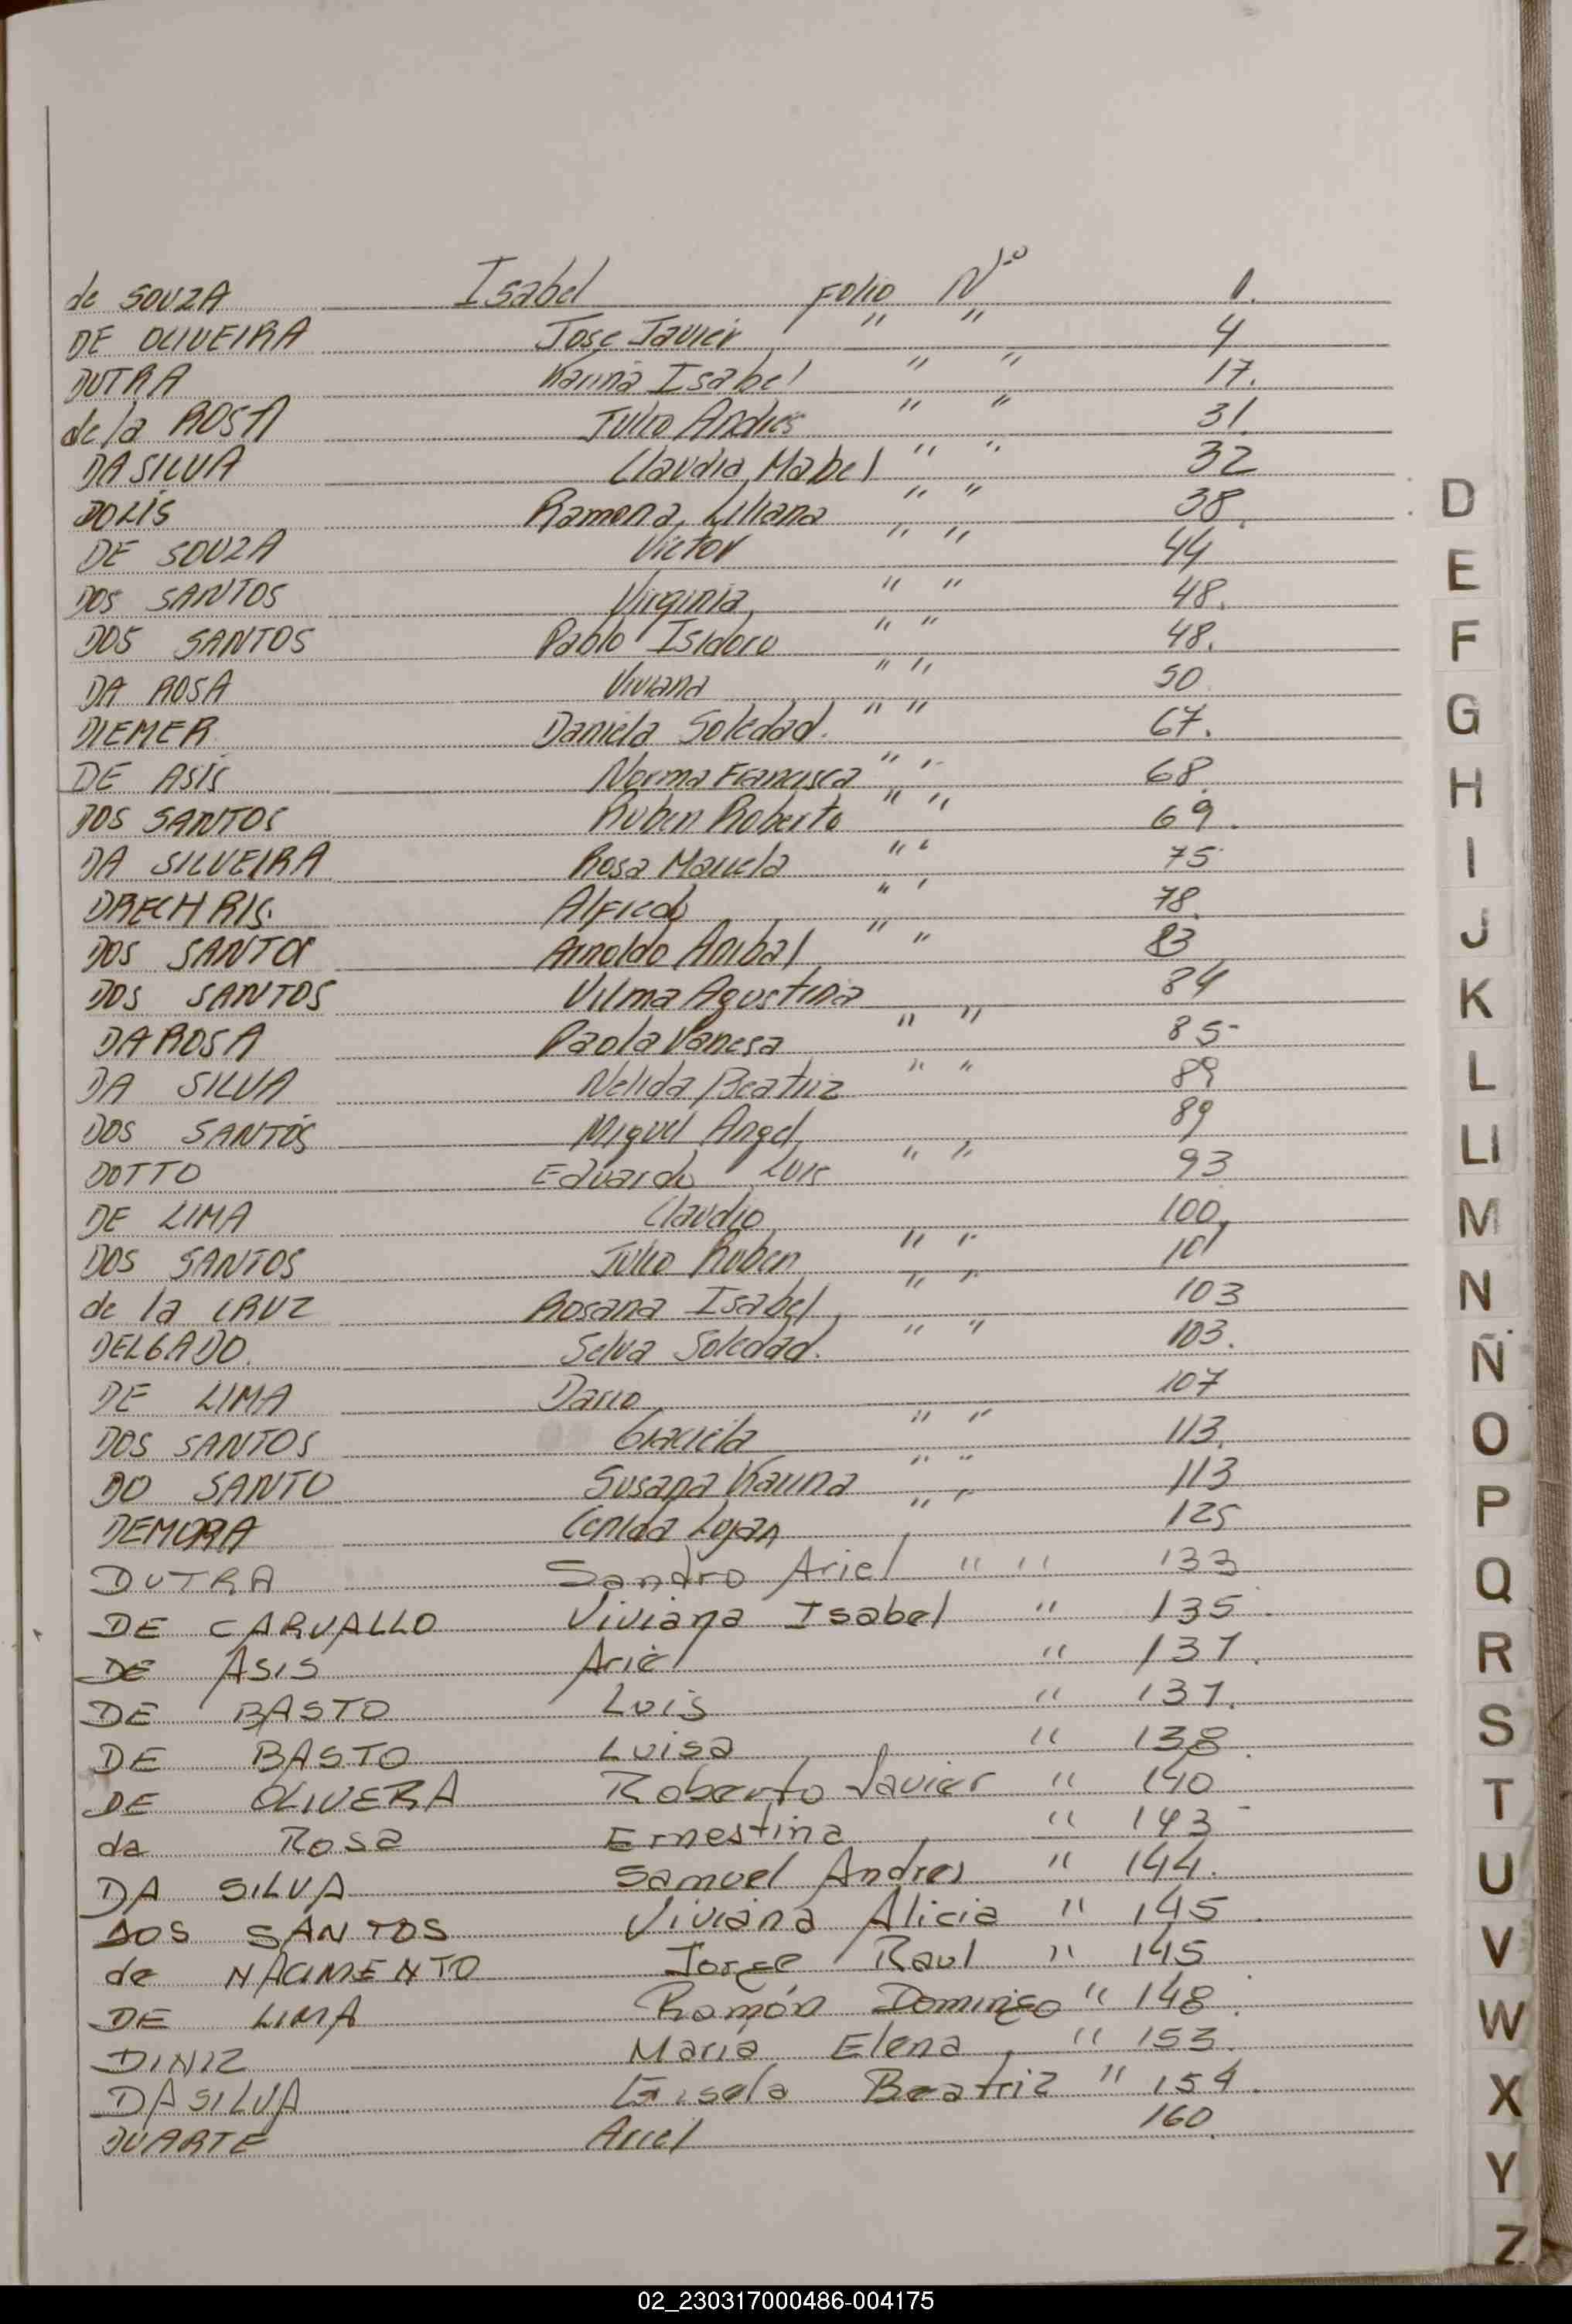 de SOUZA Isabel Folio Nº 1.
DE OLIVEIRA Jose Javier " " 4
DUTRA Karina Isabel " " 17.
de la ROSA Julio Andres " " 31.
DA SILVA Claudia Mabel " " 32
DOLIS Ramona Liliana " " 38.
DE SOUZA Victor " " 44
DOS SANTOS Virginia " " 48.
DOS SANTOS Pablo Isidoro " " 48.
DA ROSA Viviana " " 50
DIEMER Daniela Soledad. " " 67.
DE ASIS Norma Francisca " " 68.
DOS SANTOS Ruben Roberto " " 69.
DA SILVEIRA Rosa Mariela " " 75
DRECHRIS. Alfredo " " 78.
DOS SANTOS Arnoldo Anibal " " 83
DOS SANTOS Vilma Agustina 84
DA ROSA Paola Vanesa " " 85
DA SILVA Nelida Beatriz " " 89
DOS SANTOS Miguel Angel 89
DOTTO Eduardo Luis " " 93
DE LIMA Claudio 100.
DOS SANTOS Julio Ruben " " 101
de la CRUZ Rosana Isabel " " 103
DELGADO. Selva Soledad. " " 103.
DE LIMA Dario 107
DOS SANTOS Graciela " " 113.
DO SANTO Susana Karina " " 113
DEMORA Lujan " " 125
DUTRA Sandro Ariel " " 133
DE CARVALLO Viviana Isabel " 135
DE ASIS Ariel " 137.
DE BASTO Luis " 137.
DE BASTO Luisa " 138.
DE OLIVERA Roberto Javier " 140
da Rosa Ernestina " 143
DA SILVA Samuel Andres " 144.
DOS SANTOS Viviana Alicia " 145.
de NACIMENTO Jorge Raul " 145
DE LIMA Ramón Domingo " 148.
DINIZ Maria Elena " 153.
DA SILVA Gisela Beatriz " 154.
DUARTE Ariel 160.
D
E
F
G
H
I
J
K
L
Ll
M
N
Ñ
O
P
Q
R
S
T
U
V
W
X
Y
Z
02_230317000486-004175